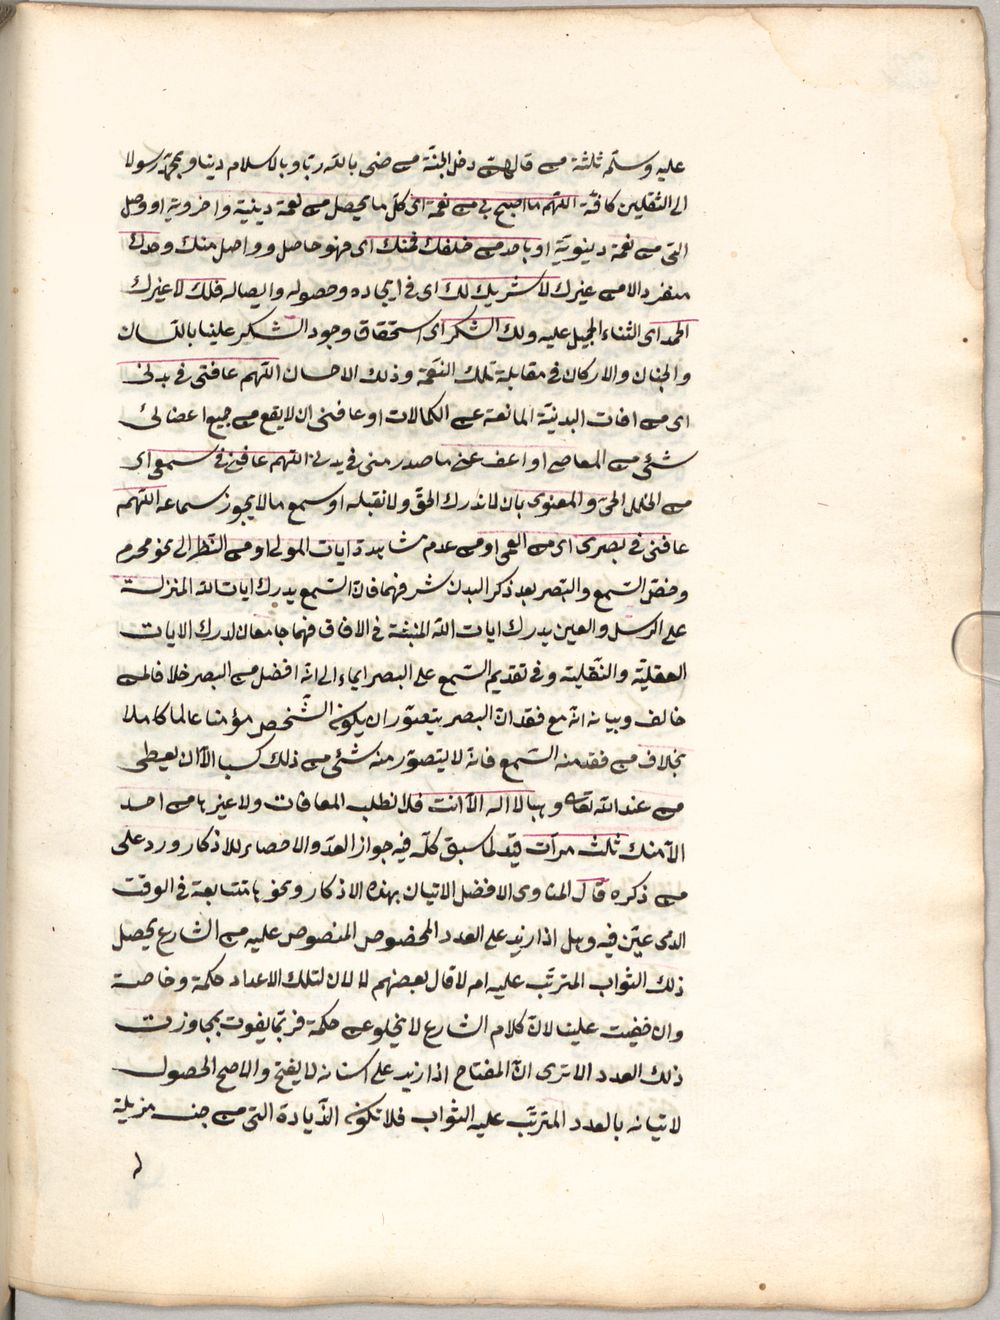 عليه وسلم ثلثة من قالهن دخل الجنة من رضى بالله ربا وبالاسلام دينا وبمحمد رسولا
الى الثقلين كافة اللهم ما اصبح بى من نعمة اى كل ما يحصل من نعمة دينية واخروية او وصل
التى من نعمة دينوية او باحد من خلقك فمنك اى فهو حاصل وواصل منك وحدك
منفردا لا من غيرك لا شريك لك اى فى ايجاده وحصوله وايصاله فلك لا غيرك
الحمد اى الثناء الجميل عليه ولك الشكر اى استحقاق وجود الشكر علينا باللسان
والجنان والاركان فى مقابلة تلك النعمة وذلك الاحسان اللهم عافنى فى بدنى
اى من افات البدنية المانعة عن الكمالات او عافنى ان لا يقع من جميع اعضائى
شئى من المعاصى او اعف عنى ما صدر منى فى بدنى اللهم عافنى فى سمعى اى
من الخلل الحسى والمعنوى بان لا ندرك الحق ولا نقبله او سمع ما لا يجوز سماعه اللهم
عافنى فى بصرى اى من العمى او من عدم مشاهدة ايات المولى او من النظر الى نحو محرم
وخص السمع والبصر بعد ذكر البدن لشرفهما فان السمع يدرك ايات الله المنزلة
على الرسل والعين يدرك ايات الله المنبثة فى الافاق فهما جامعان لدرك الايات
العقلية والنقلية وفى تقديم السمع على البصر ايماء الى انه افضل من البصر خلافا لمن
خالف وبيانه انه مع فقدان البصر يتصور ان يكون الشخص مؤمنا عالما كاملا
بخلاف من فقد منه السمع فانه لا يتصور منه شئى من ذلك كسبا الا ان يعطى
من عند الله تعالى وهبا لا اله الا انت فلا نطلب المعافات ولا غيرها من احد
الا منك ثلث مرات قيد لما سبق كله فيه جواز العد والاحصاء للاذكار ورد على
من ذكره قال المناوى الافضل الاتيان بهذه الاذكار ونحوها متتابعة فى الوقت
الذى عين فيه وهل اذا زيد على العدد المخصوص المنصوص عليه من الشارع يحصل
ذلك الثواب المترتب عليه ام لا قال بعضهم لا لان لتلك الاعداد حكمة وخاصة
وان خفيت علينا لان كلام الشارع لا يخلو عن حكمة فربما يفوت بمجاوزة
ذلك العدد الا ترى ان المفتاح اذا زيد على اسنانه لا يفتح والاصح الحصول
لاتيانه بالعدد المترتب عليه الثواب فلا تكون الزيادة التى من جنسه مزيلة